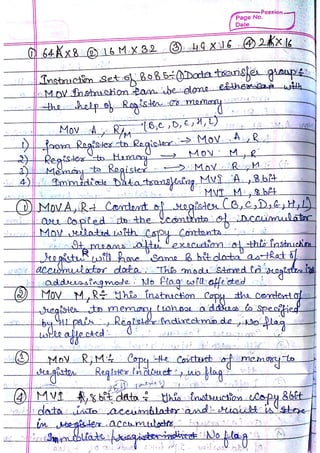 Passion
Page No.
Date
① 64K×8 ② 16M×32 ③ 4G×16 ④ 2K×16
Instruction set of 8085:- ① Data transfer group:-
MOV Instruction can be done with
the help of Register or memory
MOV A, R/M (B,C,D,E,H,L)
1) from Register to Register → MOV A,R
2) Register to Memory → MOV M,R
3) Memory to Register → MOV R,M
4) Immediate Data transfering MVI A,8bit
MVI M,8bit
① MOV A,R→ Content of register (B,C,D,E,H,L)
are copied to the contents of Accumulator
MOV related with copy contents
It means after execution of this instruction
register will have same 8 bit data as that of
accumulator data. This mode stored in register
addressing mode. No flag will affected
② MOV M,R:- This Instruction copy the content of
register to memory whose address is specified
by HL pair, Register Indirect mode, No flag
will affected
③ MOV R,M:- Copy the content of memory to
register Register Indirect, no flag
④ MVI R,8bit data:- This instruction copy 8bit
data into accumulator and result is store
in register accumulator
Immediate No flag